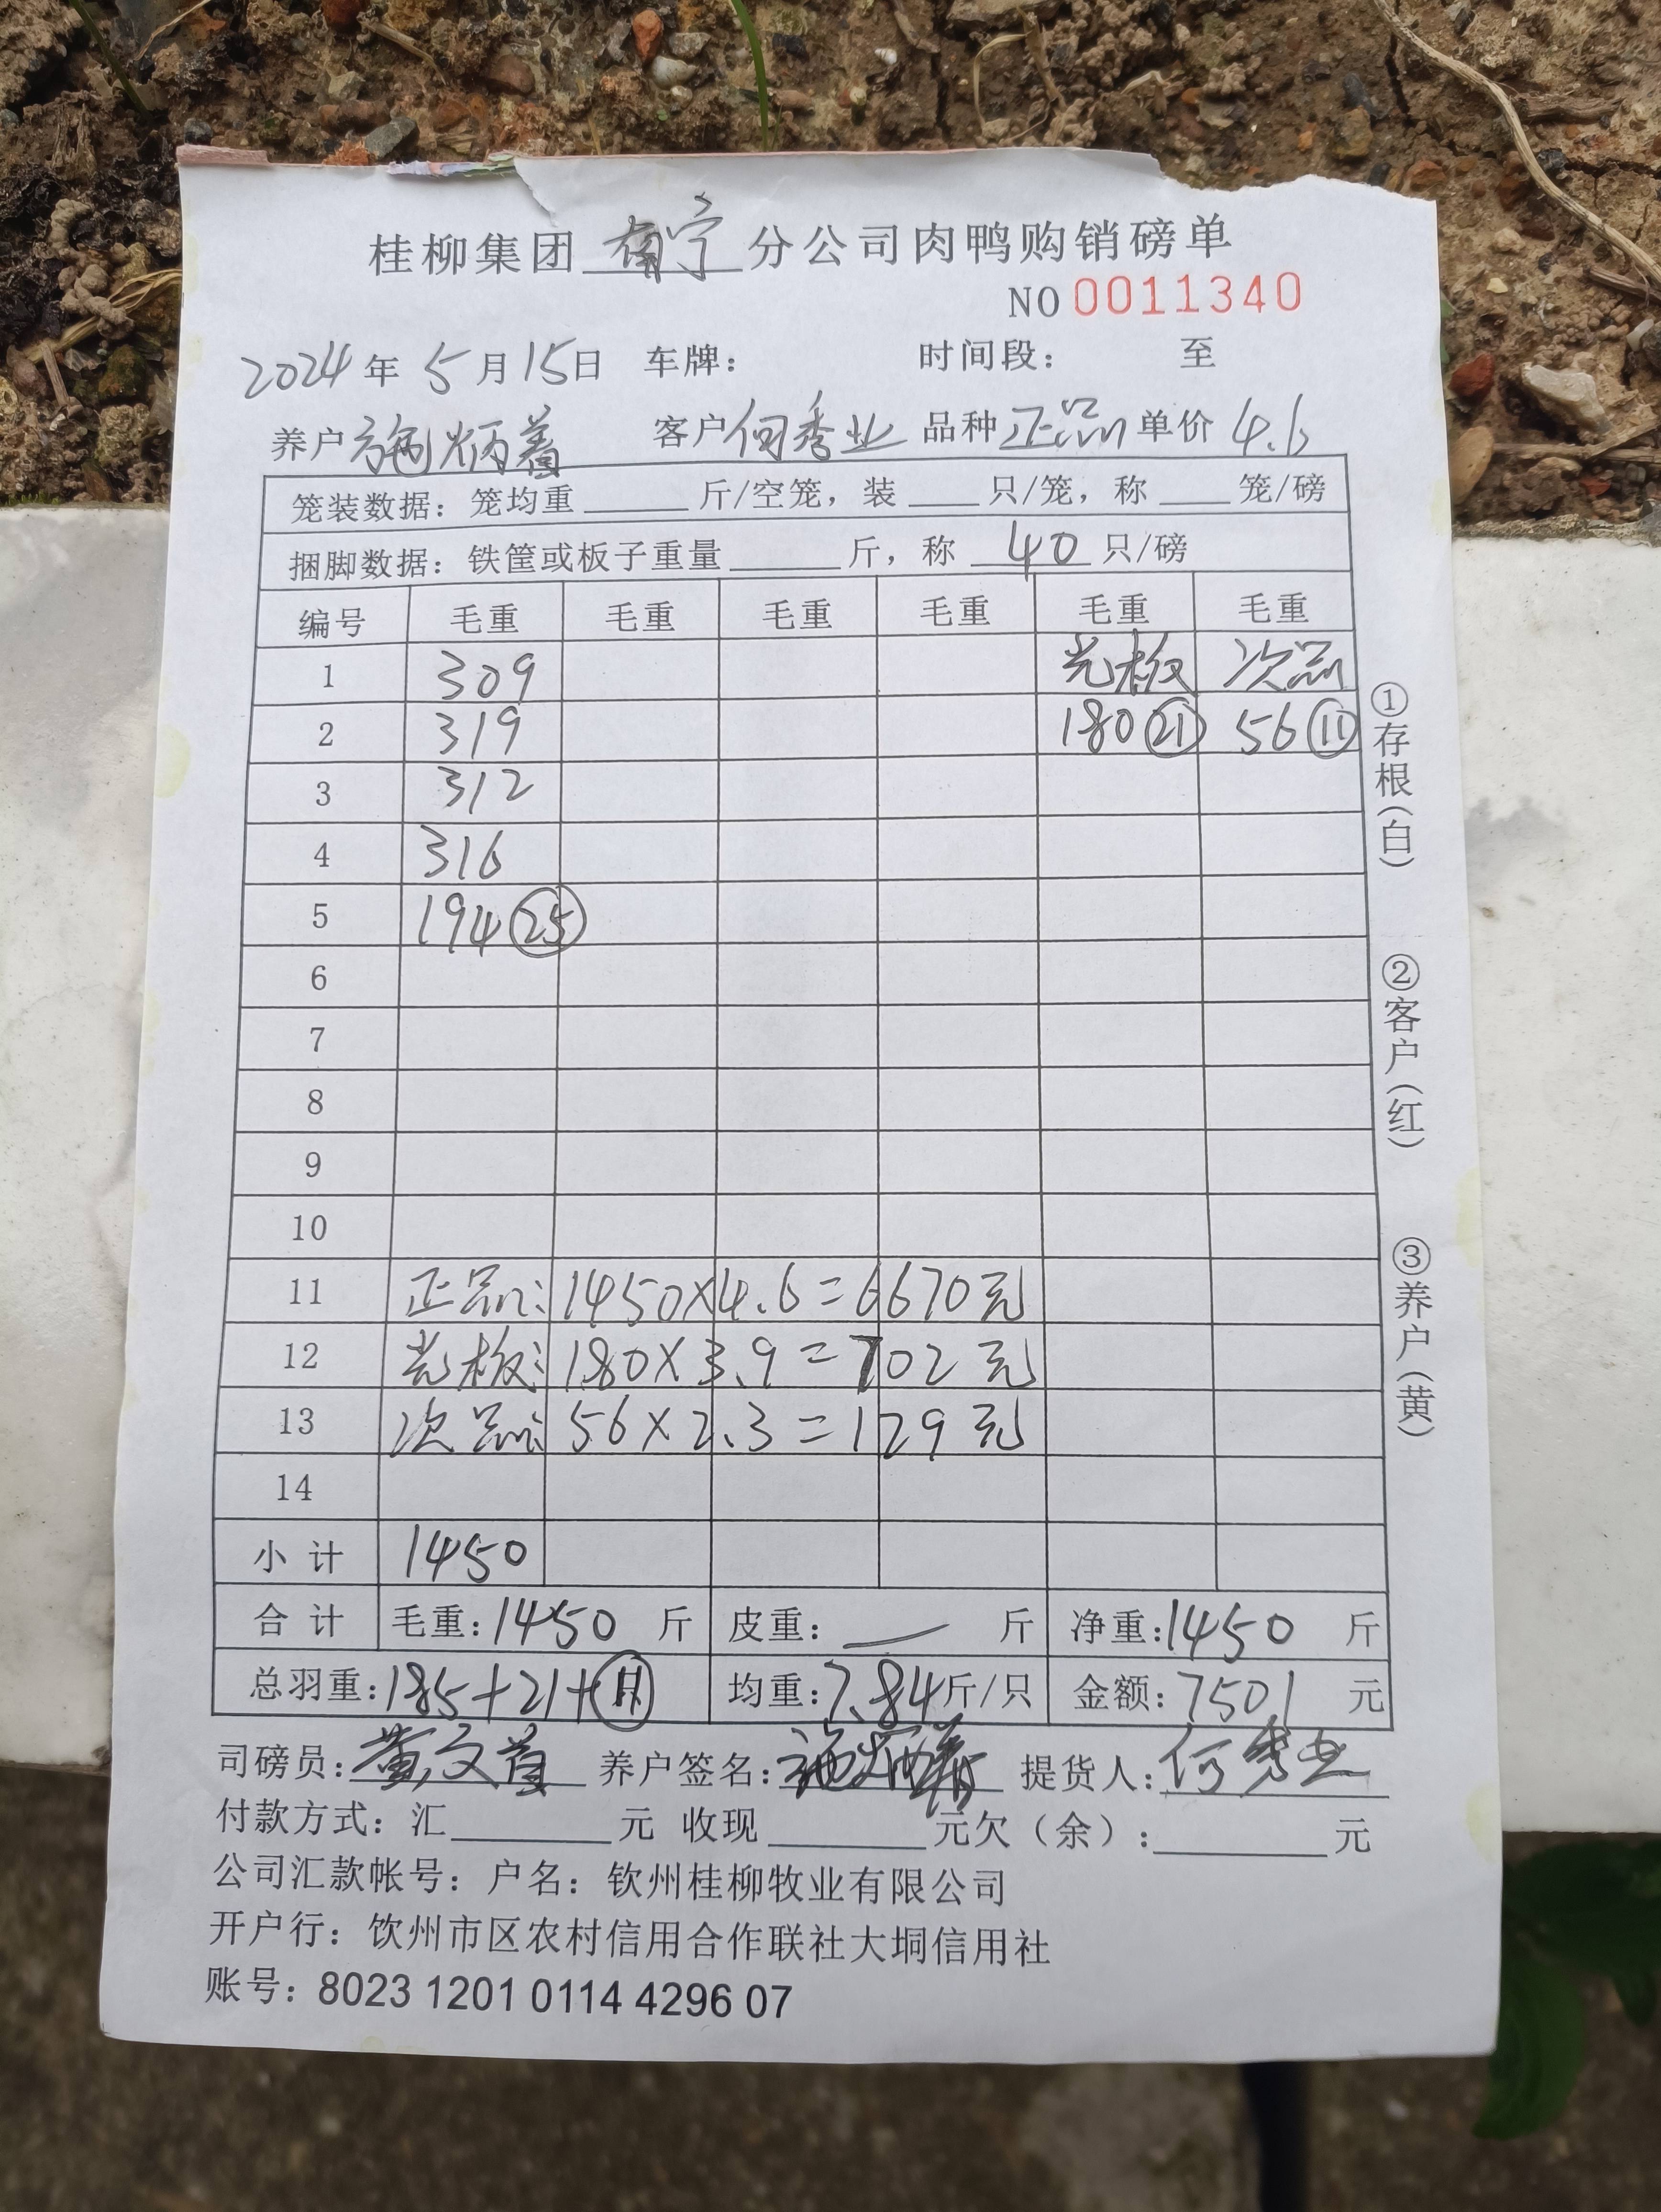 桂柳集团 南宁 分公司肉鸭购销磅单
NO 0011340
2024 年 5 月 15 日 车牌： 时间段： 至
养户 施炳着 客户 何秀业 品种 正品 单价 4.6
笼装数据：笼均重 斤/空笼，装 只/笼，称 笼/磅
捆脚数据：铁筐或板子重量 斤，称 40 只/磅
编号 毛重 毛重 毛重 毛重 毛重 毛重
1 309 光板 次品
2 319 180 ㉑ 56 ⑪
3 312
4 316
5 194 ㉕
6
7
8
9
10
11 正品：1450×4.6=6670元
12 光板：180×3.9=702元
13 次品：56×2.3=129元
14
小计 1450
合计 毛重：1450 斤 皮重：— 斤 净重：1450 斤
总羽重：185+21+⑪ 均重：7.84斤/只 金额：7501 元
司磅员： 养户签名： 提货人：何秀业
付款方式：汇 元 收现 元欠（余）： 元
公司汇款帐号：户名：钦州桂柳牧业有限公司
开户行：饮州市区农村信用合作联社大垌信用社
账号：8023 1201 0114 4296 07
①存根（白）
②客户（红）
③养户（黄）